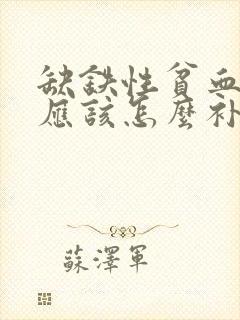 缺鉄性貧血
應該怎麼补
蘇澤軍